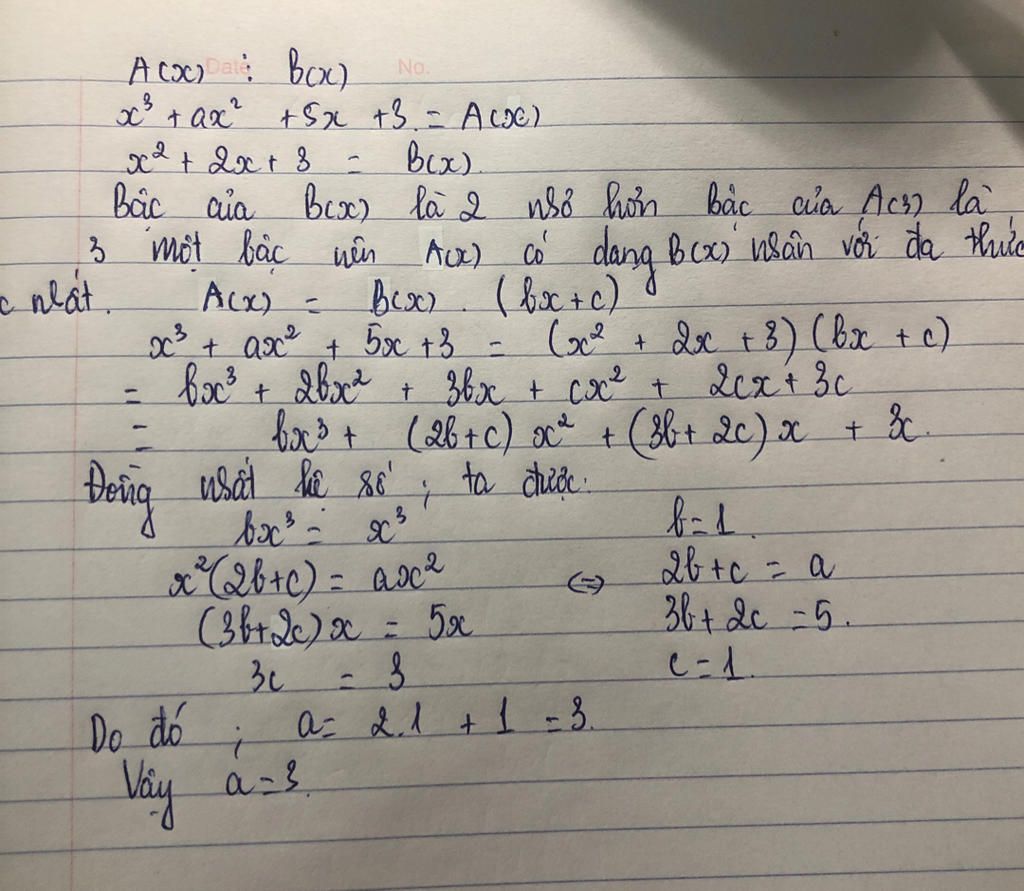 Date No.
A(x) ⋮ B(x)
x³ + ax² + 5x + 3 = A(x)
x² + 2x + 3 = B(x)
Bậc của B(x) là 2 nhỏ hơn bậc của A(x) là
3 một bậc nên A(x) có dạng B(x) nhân với đa thức
c nhất. A(x) = B(x) . (bx+c)
x³ + ax² + 5x + 3 = (x² + 2x + 3)(bx + c)
= bx³ + 2bx² + 3bx + cx² + 2cx + 3c
= bx³ + (2b+c) x² + (3b+2c) x + 3c.
Đồng nhất hệ số ; ta được:
bx³ = x³ b=1.
x²(2b+c) = ax² <=> 2b+c = a
(3b+2c)x = 5x 3b+2c = 5.
3c = 3 c=1.
Do đó ; a= 2.1 + 1 = 3.
Vậy a=3.